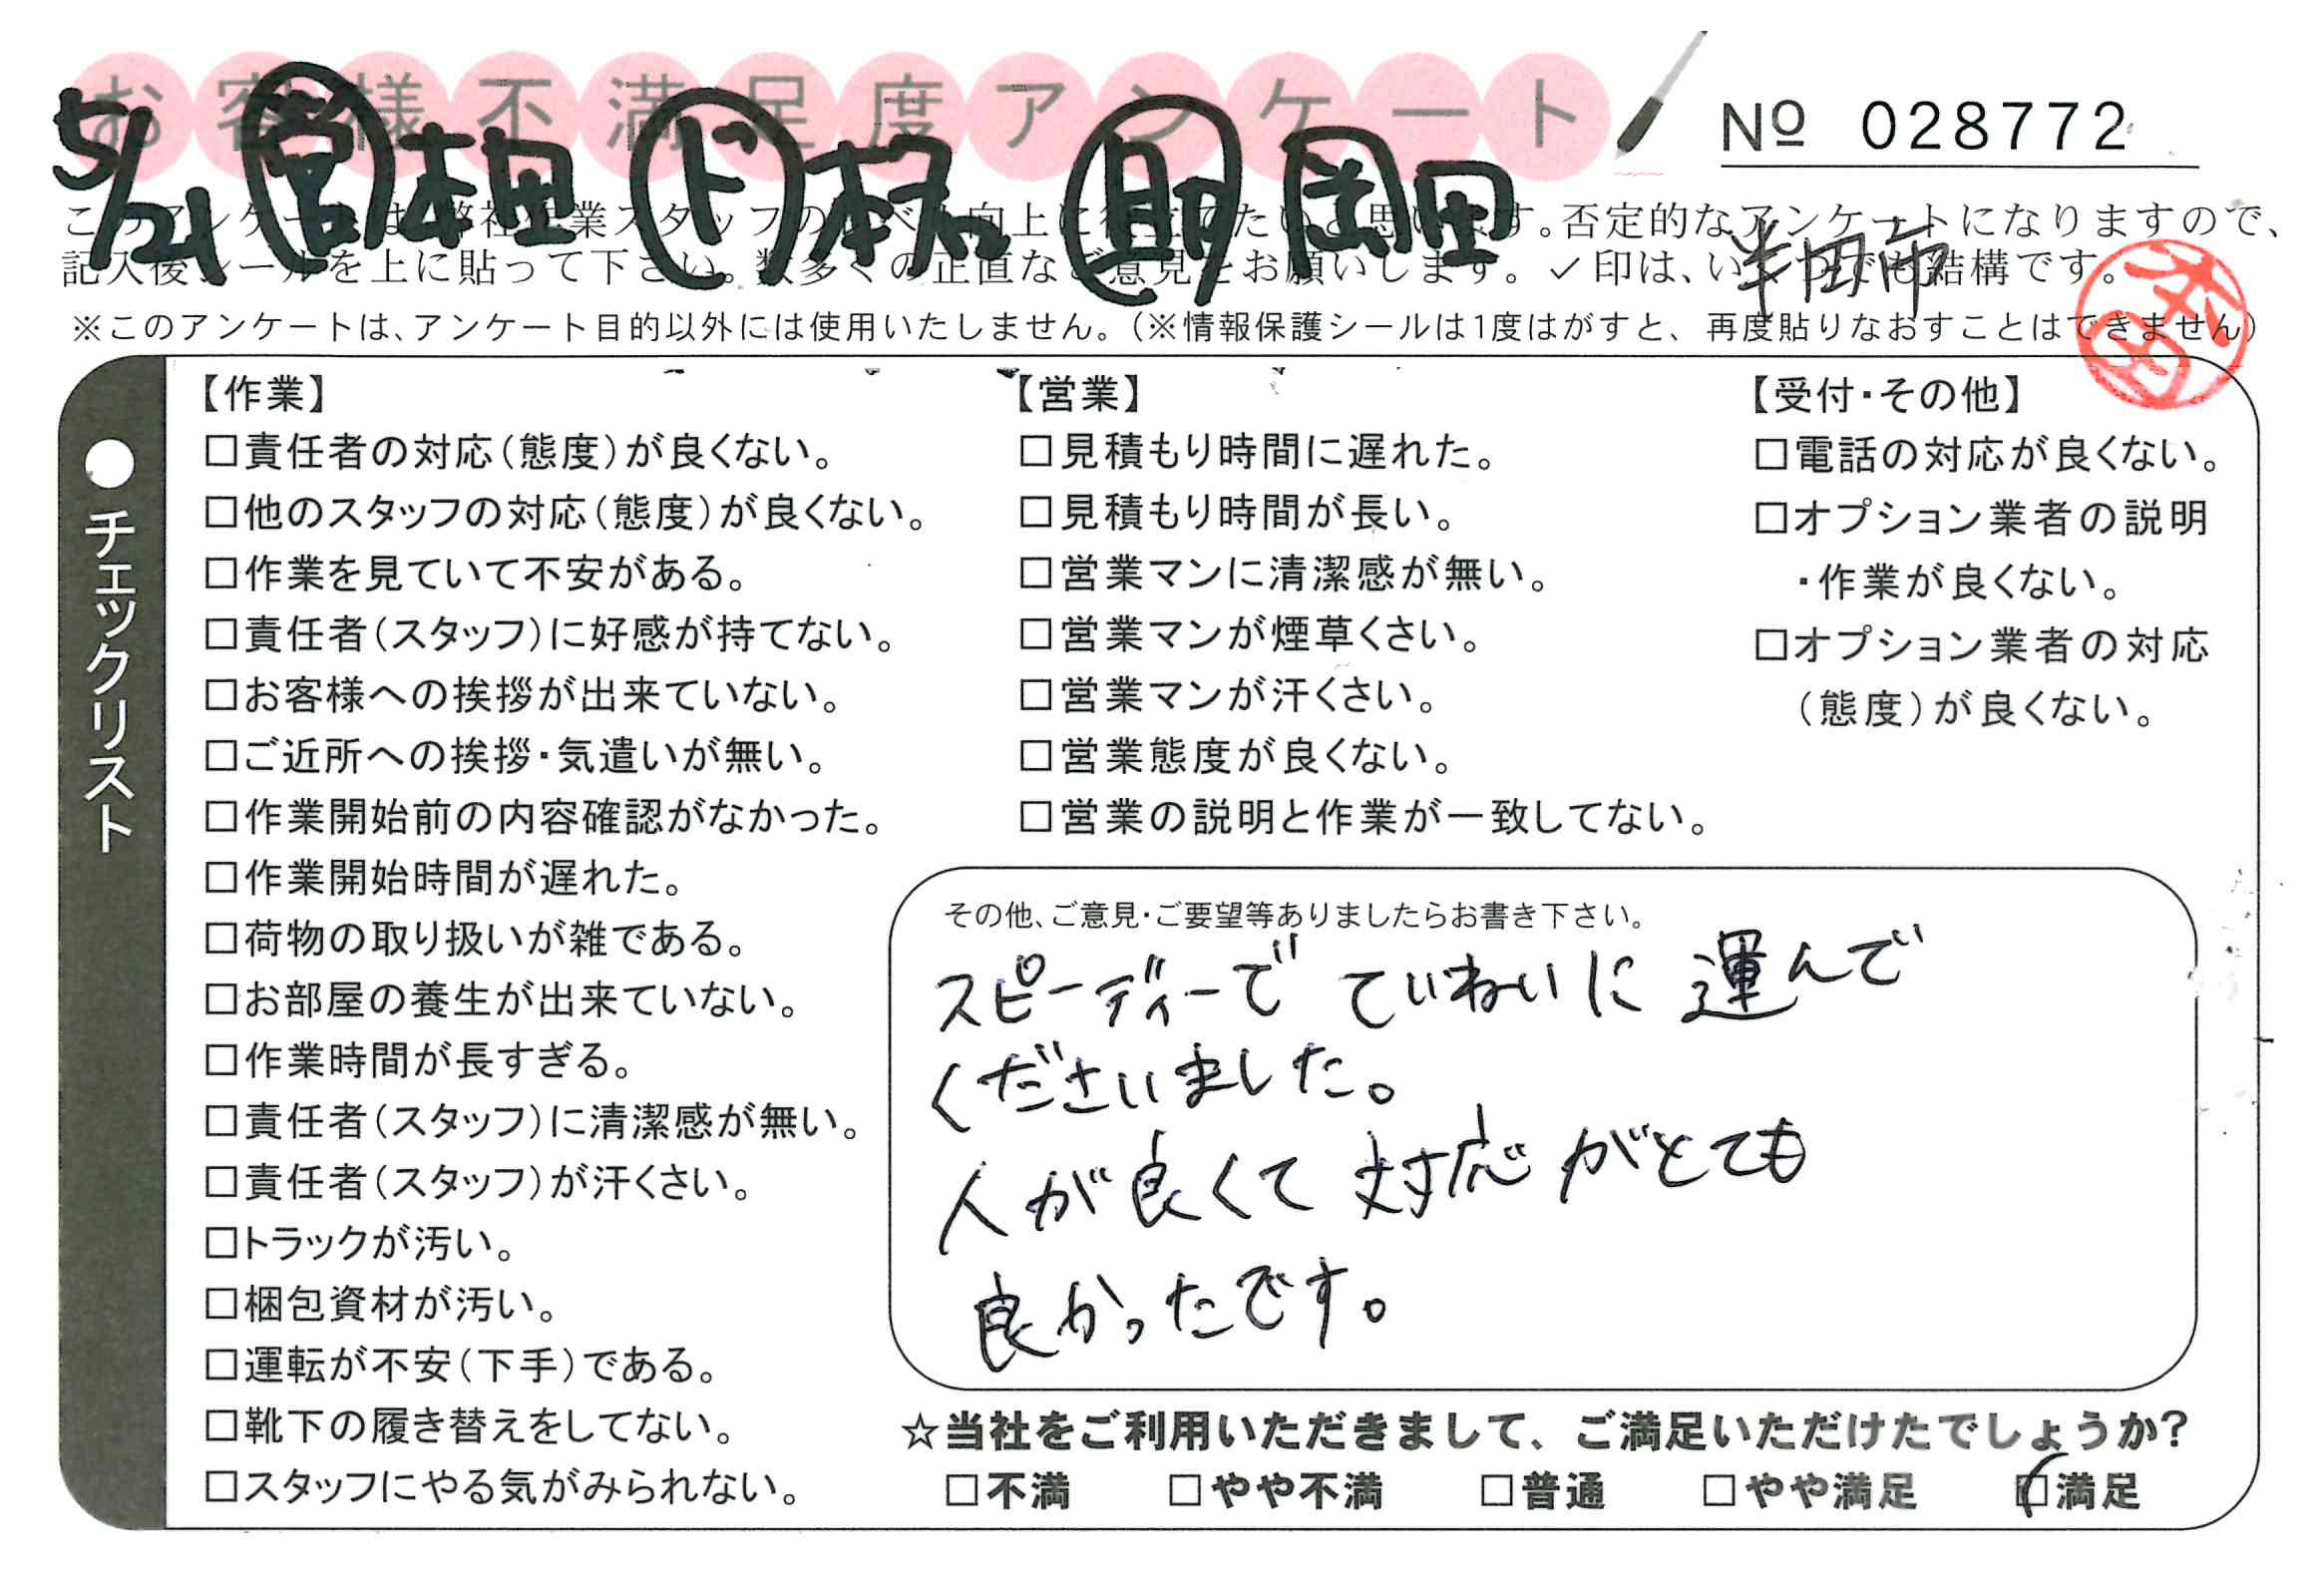 お客様不満足度アンケート
№ 028772
5/21 営 本田 ド 本松 助 岡田
半田市
このアンケートは、弊社作業スタッフのレベル向上に役立てたいと思います。否定的なアンケートになりますので、
記入後シールを上に貼って下さい。数多くの正直なご意見をお願いします。✓印は、いくつでも結構です。
※このアンケートは、アンケート目的以外には使用いたしません。（※情報保護シールは1度はがすと、再度貼りなおすことはできません）
●チェックリスト
【作業】
□責任者の対応（態度）が良くない。
□他のスタッフの対応（態度）が良くない。
□作業を見ていて不安がある。
□責任者（スタッフ）に好感が持てない。
□お客様への挨拶が出来ていない。
□ご近所への挨拶・気遣いが無い。
□作業開始前の内容確認がなかった。
□作業開始時間が遅れた。
□荷物の取り扱いが雑である。
□お部屋の養生が出来ていない。
□作業時間が長すぎる。
□責任者（スタッフ）に清潔感が無い。
□責任者（スタッフ）が汗くさい。
□トラックが汚い。
□梱包資材が汚い。
□運転が不安（下手）である。
□靴下の履き替えをしてない。
□スタッフにやる気がみられない。
【営業】
□見積もり時間に遅れた。
□見積もり時間が長い。
□営業マンに清潔感が無い。
□営業マンが煙草くさい。
□営業マンが汗くさい。
□営業態度が良くない。
□営業の説明と作業が一致してない。
【受付・その他】
□電話の対応が良くない。
□オプション業者の説明
・作業が良くない。
□オプション業者の対応
（態度）が良くない。
その他、ご意見・ご要望等ありましたらお書き下さい。
スピーディーで ていねいに 運んで
くださいました。
人が良くて 対応がとても
良かったです。
☆当社をご利用いただきまして、ご満足いただけたでしょうか？
□不満 □やや不満 □普通 □やや満足 ☑満足